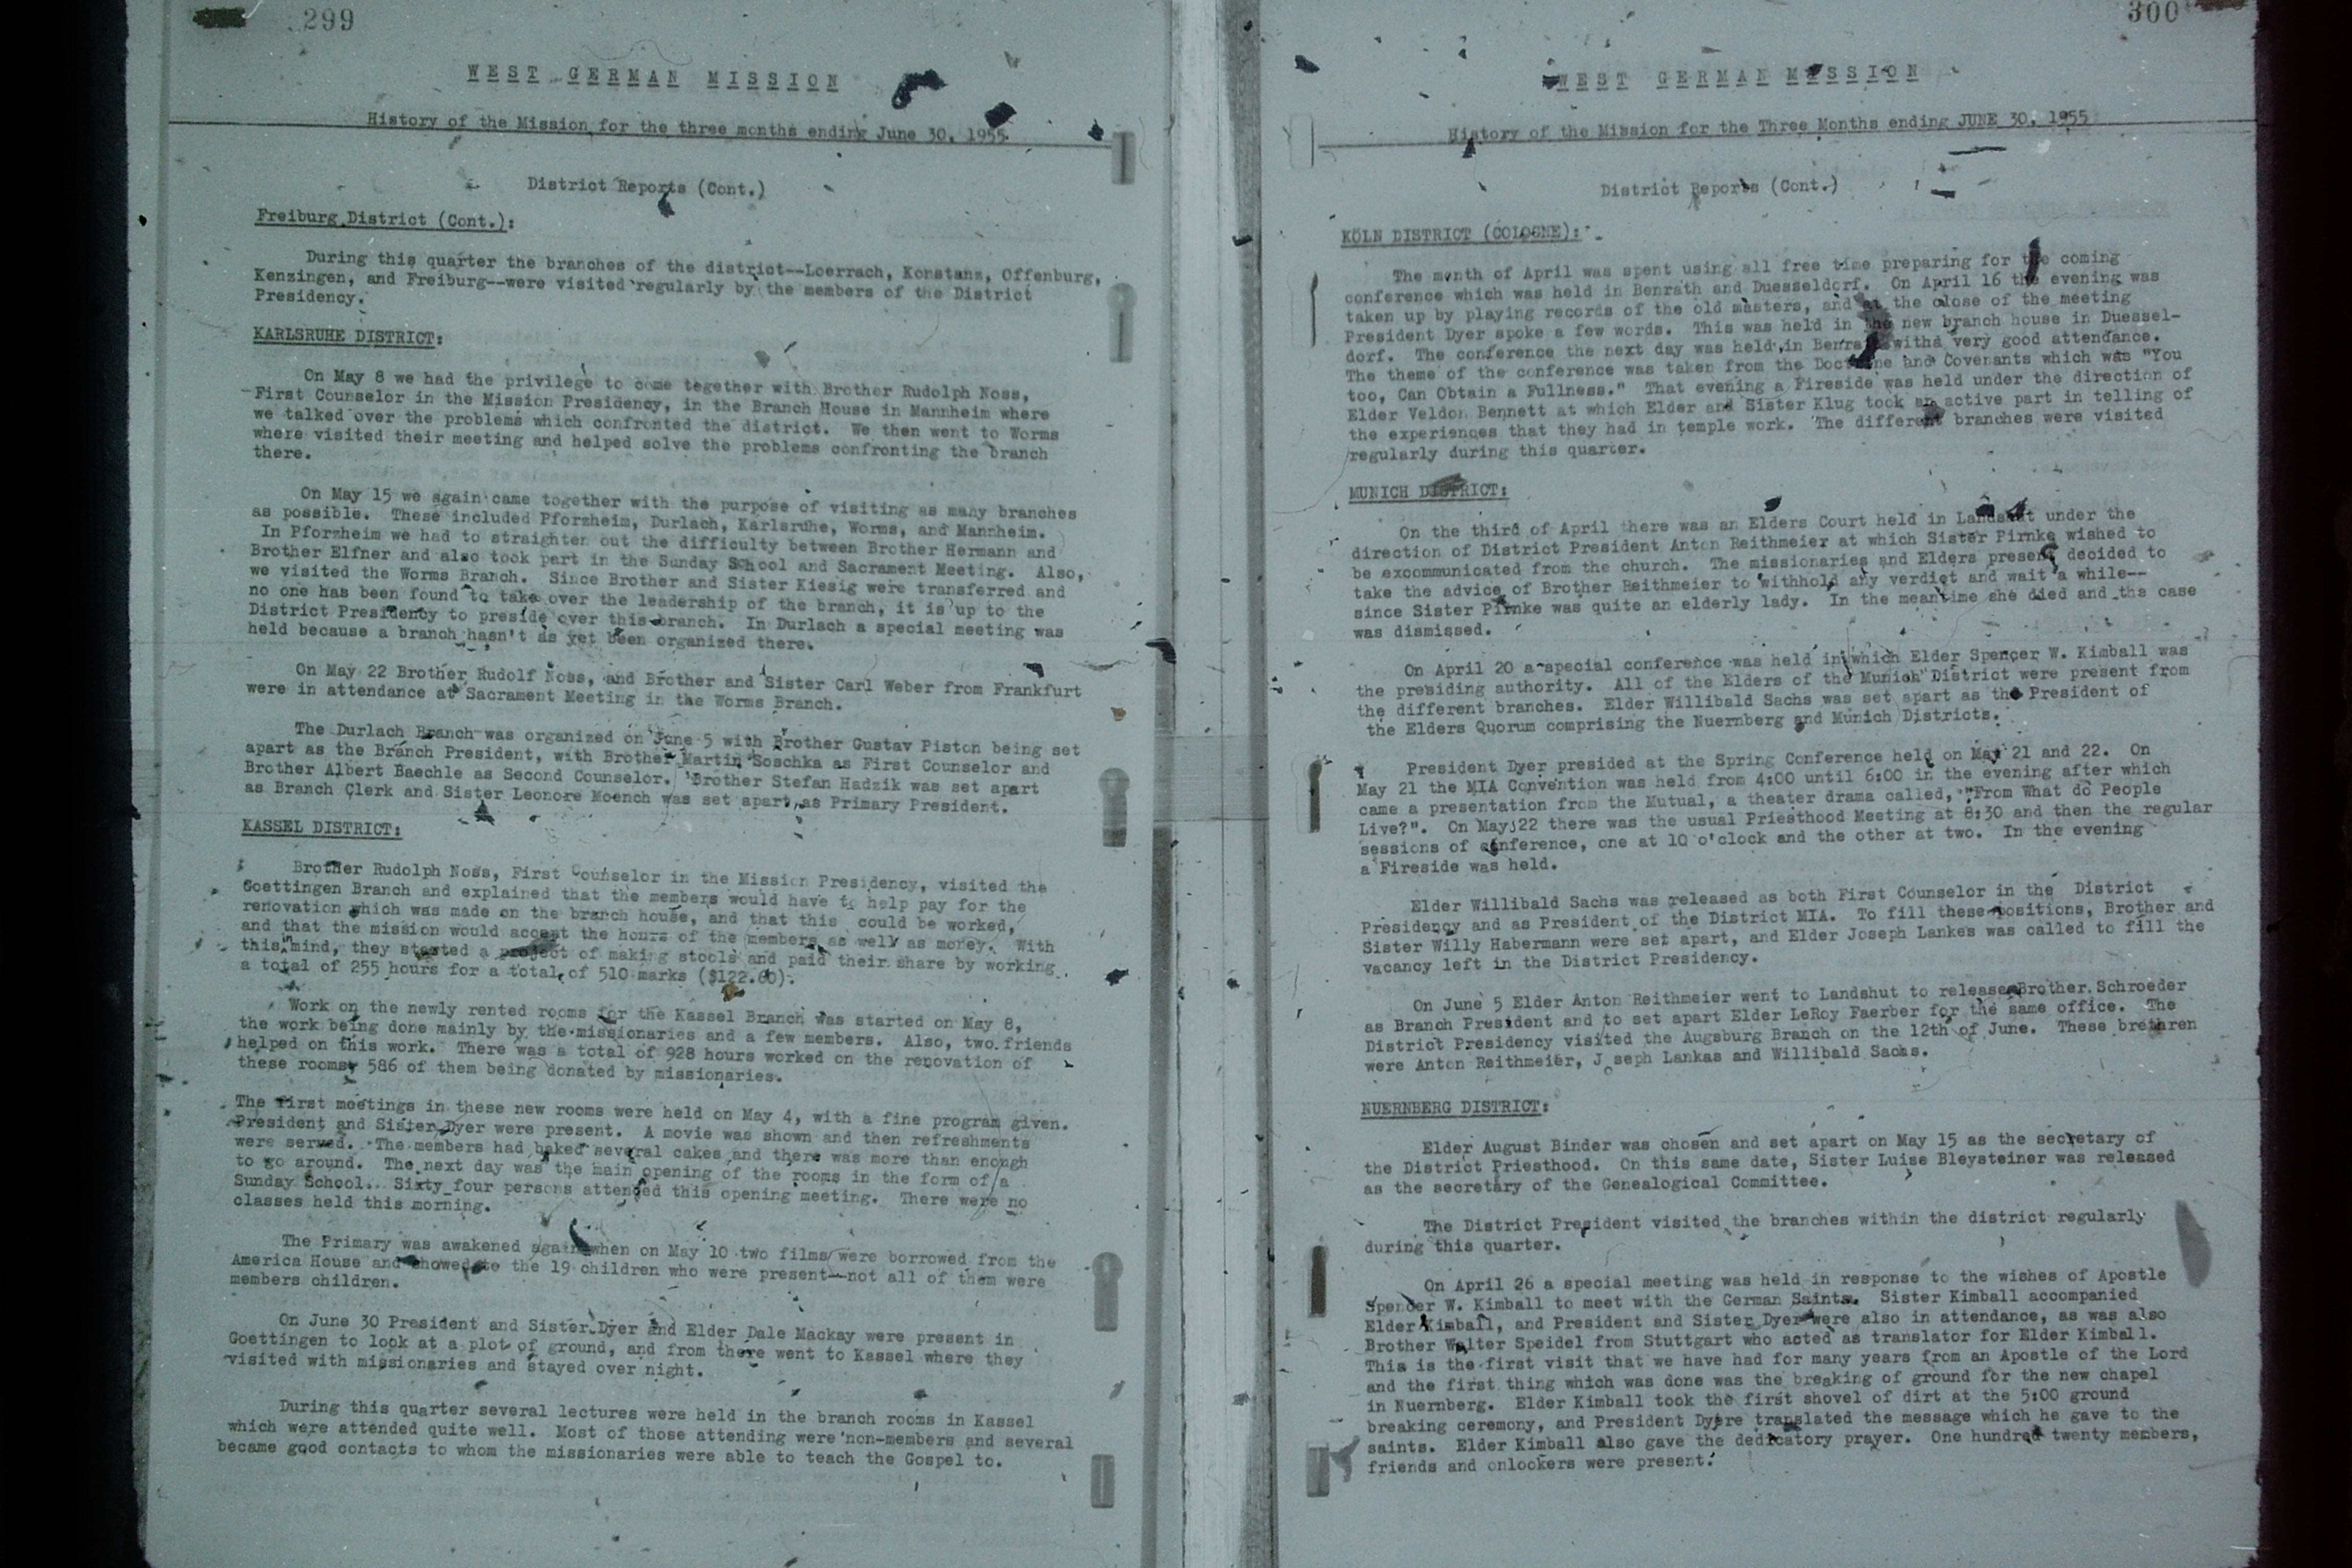 299
WEST GERMAN MISSION
History of the Mission for the three months ending June 30, 1955
District Reports (Cont.)
Freiburg District (Cont.):
During this quarter the branches of the district--Loerrach, Konstanz, Offenburg,
Kenzingen, and Freiburg--were visited regularly by the members of the District
Presidency.
KARLSRUHE DISTRICT:
On May 8 we had the privilege to come together with Brother Rudolph Noss,
First Counselor in the Mission Presidency, in the Branch House in Mannheim where
we talked over the problems which confronted the district. We then went to Worms
where visited their meeting and helped solve the problems confronting the branch
there.
On May 15 we again came together with the purpose of visiting as many branches
as possible. These included Pforzheim, Durlach, Karlsruhe, Worms, and Mannheim.
In Pforzheim we had to straighten out the difficulty between Brother Hermann and
Brother Elfner and also took part in the Sunday School and Sacrament Meeting. Also,
we visited the Worms Branch. Since Brother and Sister Kiesig were transferred and
no one has been found to take over the leadership of the branch, it is up to the
District Presidency to preside over this branch. In Durlach a special meeting was
held because a branch hasn't as yet been organized there.
On May 22 Brother Rudolf Noss, and Brother and Sister Carl Weber from Frankfurt
were in attendance at Sacrament Meeting in the Worms Branch.
The Durlach Branch was organized on June 5 with Brother Gustav Piston being set
apart as the Branch President, with Brother Martin Soschka as First Counselor and
Brother Albert Baechle as Second Counselor. Brother Stefan Hadzik was set apart
as Branch Clerk and Sister Leonore Moench was set apart as Primary President.
KASSEL DISTRICT:
Brother Rudolph Noss, First Counselor in the Mission Presidency, visited the
Goettingen Branch and explained that the members would have to help pay for the
renovation which was made on the branch house, and that this could be worked,
and that the mission would accept the hours of the members as well as money. With
this mind, they started a project of making stools and paid their share by working
a total of 255 hours for a total of 510 marks ($122.60).
Work on the newly rented rooms for the Kassel Branch was started on May 8,
the work being done mainly by the missionaries and a few members. Also, two friends
helped on this work. There was a total of 928 hours worked on the renovation of
these rooms, 586 of them being donated by missionaries.
The first meetings in these new rooms were held on May 4, with a fine program given.
President and Sister Dyer were present. A movie was shown and then refreshments
were served. The members had baked several cakes and there was more than enough
to go around. The next day was the main opening of the rooms in the form of a
Sunday School. Sixty four persons attended this opening meeting. There were no
classes held this morning.
The Primary was awakened again when on May 10 two films were borrowed from the
America House and showed to the 19 children who were present--not all of them were
members children.
On June 30 President and Sister Dyer and Elder Dale Mackay were present in
Goettingen to look at a plot of ground, and from there went to Kassel where they
visited with missionaries and stayed over night.
During this quarter several lectures were held in the branch rooms in Kassel
which were attended quite well. Most of those attending were non-members and several
became good contacts to whom the missionaries were able to teach the Gospel to.
300
WEST GERMAN MISSION
History of the Mission for the Three Months ending JUNE 30, 1955
District Reports (Cont.)
KÖLN DISTRICT (COLOGNE):
The month of April was spent using all free time preparing for the coming
conference which was held in Benrath and Duesseldorf. On April 16 the evening was
taken up by playing records of the old masters, and at the close of the meeting
President Dyer spoke a few words. This was held in the new branch house in Duessel-
dorf. The conference the next day was held in Benrath witha very good attendance.
The theme of the conference was taken from the Doctrine and Covenants which was "You
too, Can Obtain a Fullness." That evening a Fireside was held under the direction of
Elder Veldon Bennett at which Elder and Sister Klug took an active part in telling of
the experiences that they had in temple work. The different branches were visited
regularly during this quarter.
MUNICH DISTRICT:
On the third of April there was an Elders Court held in Landshut under the
direction of District President Anton Reithmeier at which Sister Pirnke wished to
be excommunicated from the church. The missionaries and Elders present decided to
take the advice of Brother Reithmeier to withhold any verdict and wait a while--
since Sister Pirnke was quite an elderly lady. In the meantime she died and the case
was dismissed.
On April 20 a special conference was held in which Elder Spencer W. Kimball was
the presiding authority. All of the Elders of the Munich District were present from
the different branches. Elder Willibald Sachs was set apart as the President of
the Elders Quorum comprising the Nuernberg and Munich Districts.
President Dyer presided at the Spring Conference held on May 21 and 22. On
May 21 the MIA Convention was held from 4:00 until 6:00 in the evening after which
came a presentation from the Mutual, a theater drama called, "From What do People
Live?". On May 22 there was the usual Priesthood Meeting at 8:30 and then the regular
sessions of conference, one at 10 o'clock and the other at two. In the evening
a Fireside was held.
Elder Willibald Sachs was released as both First Counselor in the District
Presidency and as President of the District MIA. To fill these positions, Brother and
Sister Willy Habermann were set apart, and Elder Joseph Lankes was called to fill the
vacancy left in the District Presidency.
On June 5 Elder Anton Reithmeier went to Landshut to release Brother Schroeder
as Branch President and to set apart Elder LeRoy Faerber for the same office. The
District Presidency visited the Augsburg Branch on the 12th of June. These brethren
were Anton Reithmeier, Joseph Lankas and Willibald Sachs.
NUERNBERG DISTRICT:
Elder August Binder was chosen and set apart on May 15 as the secretary of
the District Priesthood. On this same date, Sister Luise Bleysteiner was released
as the secretary of the Genealogical Committee.
The District President visited the branches within the district regularly
during this quarter.
On April 26 a special meeting was held in response to the wishes of Apostle
Spencer W. Kimball to meet with the German Saints. Sister Kimball accompanied
Elder Kimball, and President and Sister Dyer were also in attendance, as was also
Brother Walter Speidel from Stuttgart who acted as translator for Elder Kimball.
This is the first visit that we have had for many years from an Apostle of the Lord
and the first thing which was done was the breaking of ground for the new chapel
in Nuernberg. Elder Kimball took the first shovel of dirt at the 5:00 ground
breaking ceremony, and President Dyere translated the message which he gave to the
saints. Elder Kimball also gave the dedicatory prayer. One hundred twenty members,
friends and onlookers were present.